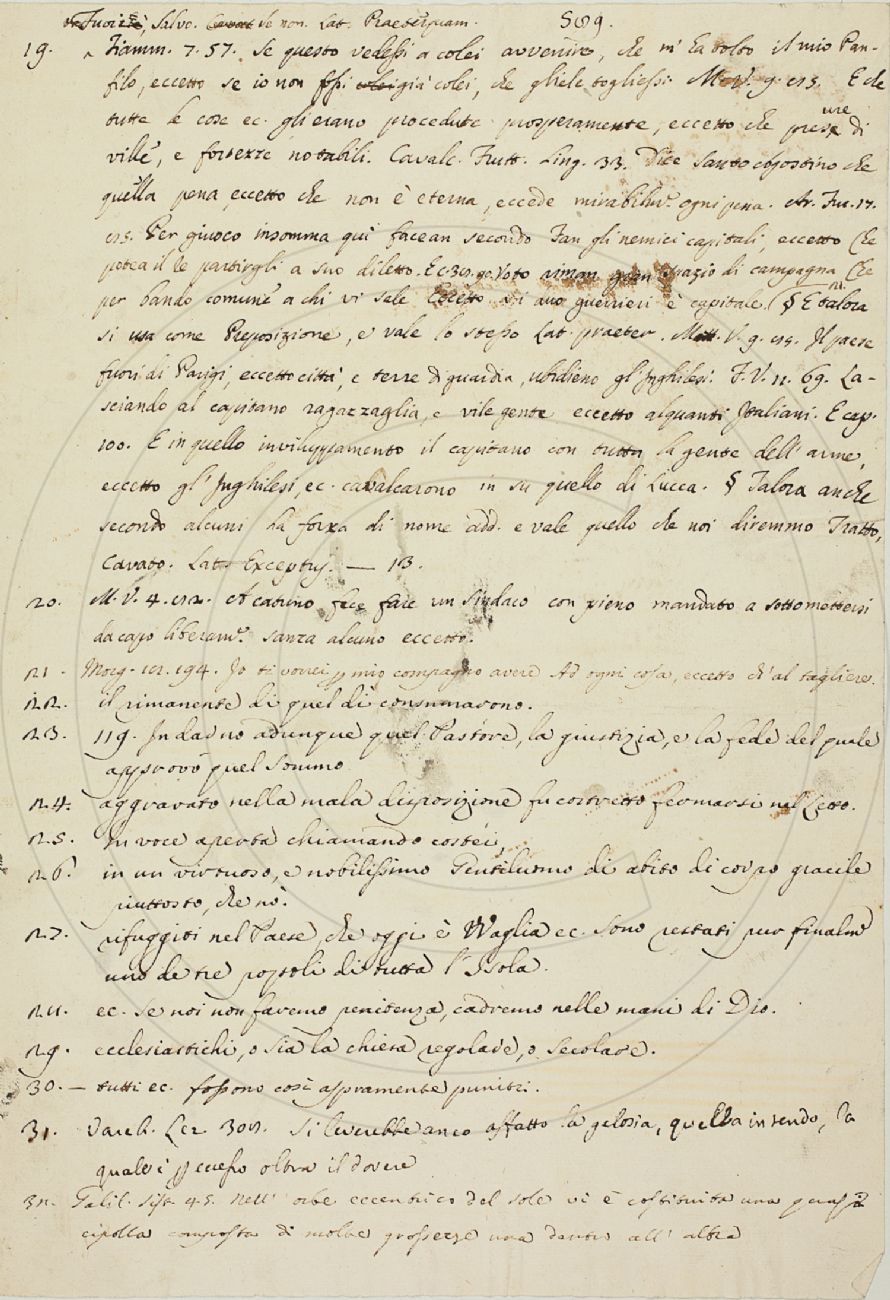 Fuorichè, Salvo. se non. Lat. Praeterquam. 509.
19. Fiamm. 7. 57. Se questo vedessi a colei avvenire, che m' ha tolto il mio Pan-
filo, eccetto se io non fossi già colei, che gliele togliessi. M. V. 9. E che
tutte le cose ec. gli erano procedute prosperamente, eccetto che di
ville, e fortezze notabili. Cavalc. Frutt. ling. 33. Dice Santo Agostino che
quella pena eccetto che non è eterna, eccede mirabilm. ogni pena. Ar. Fur. 17.
Per giuoco insomma qui facean secondo Fan gli nemici capitali, eccetto Che
potea il Re partirgli a suo diletto. Voto riman gran spazio di campagna Che
per bando comune a chi vi sale Eccetto ai duo guerrieri è capitale. § E talora
si usa come Preposizione, e vale lo stesso Lat. praeter. Matt. V. 9. Il paese
fuori di Parigi, eccetto città, e terre di guardia, ubidieno gl' Inghilesi. F. V. 11. 69. La-
sciando al capitano ragazzaglia, e vile gente eccetto alquanti Italiani. E cap.
100. E in quello inviluppamento il capitano con tutta la gente dell' arme,
eccetto gl' Inghilesi, ec. cavalcarono in su quello di Lucca. § Talora anche
secondo alcuni ha forza di nome add. e vale quello che noi diremmo Tratto,
Cavato. Lat. Exceptus. — B.
20. M. V. 4. A catuno fece fare un sindaco con pieno mandato a sottomettersi
da capo liberam. sanza alcuno eccetto.
21. Morg. 194. Io ti vorrei p mio compagno avere Ad ogni cosa, eccetto ch' al tagliere.
22. il rimanente di quel dì consumarono.
23. 119. Indarno adunque quel Pastore, la giustizia, e la fede del quale
approvò quel sommo
24. aggravato nella mala disposizione fu costretto fermarsi nel Letto.
25. In voce aperta chiamando costei,
26. in un virtuoso, e nobilissimo Gentiluomo di abito di corpo gracile
piuttosto, che nò.
27. rifuggiti nel Paese, che oggi è Waglia ec. sono restati pur finalm
uno de tre popoli di tutta l' Isola.
28. ec. se noi non faremo penitenza, cadremo nelle mani di Dio.
29. ecclesiastichi, o sia la chiesa regolare, o secolare.
30. — tutti ec. fossono così aspramente puniti.
31. Varch. Lez. Si leverebbe anco affatto la gelosia, quella intendo, la
quale è p eccesso oltra il dovere
32. Galil. Sist. 45. Nell' orbe eccentrico del sole vi è costituita una
cipolla composta di molte grossezze una dentro all' altra